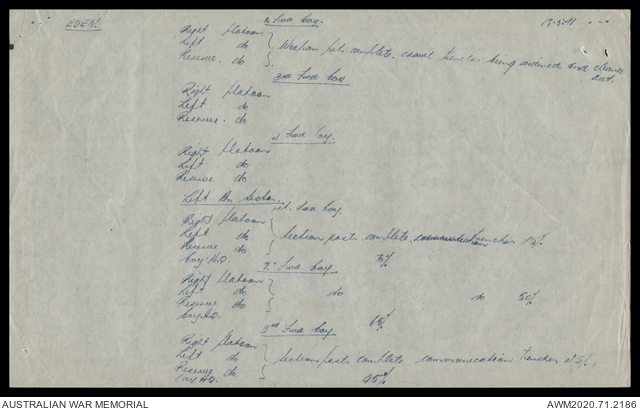 EDEN! 2 Fwd Coy.
Right Platoon
Left do Weapon pits complete. crawl trenches being widened and cleaned
Reserve. do out.
3rd Fwd Coy
Right Platoon
Left do
Reserve. do
4 Fwd Coy.
Right Platoon
Left do
Reserve do
Left Bn Sector
1st. Fwd Coy
Right Platoon
Left do Section posts complete communication trenches 75%
Reserve do
Coy. H.Q. 70%
2" Fwd Coy
Right Platoon
Left do do do 50%
Reserve do
Coy H.Q. 65%
3rd Fwd Coy.
Right Platoon
Left do Section posts complete communication trenches 25%
Reserve do
Coy H.Q. 95%
AUSTRALIAN WAR MEMORIAL
AWM2020.71.2186